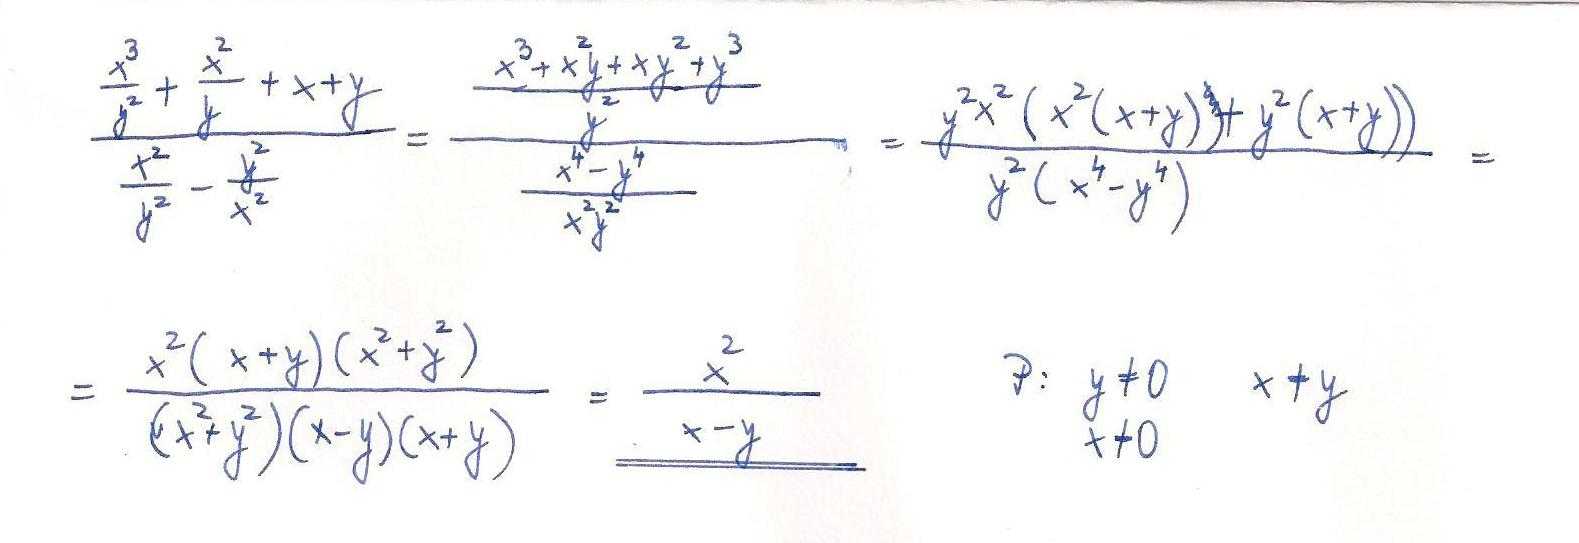 \frac{\frac{x^3}{y^2} + \frac{x^2}{y} + x + y}{\frac{x^2}{y^2} - \frac{y^2}{x^2}} = \frac{\frac{x^3 + x^2y + xy^2 + y^3}{y^2}}{\frac{x^4 - y^4}{x^2y^2}} = \frac{y^2x^2(x^2(x+y) + y^2(x+y))}{y^2(x^4 - y^4)} =
= \frac{x^2(x+y)(x^2+y^2)}{(x^2+y^2)(x-y)(x+y)} = \frac{x^2}{x-y} P: y≠0 x≠y
x≠0